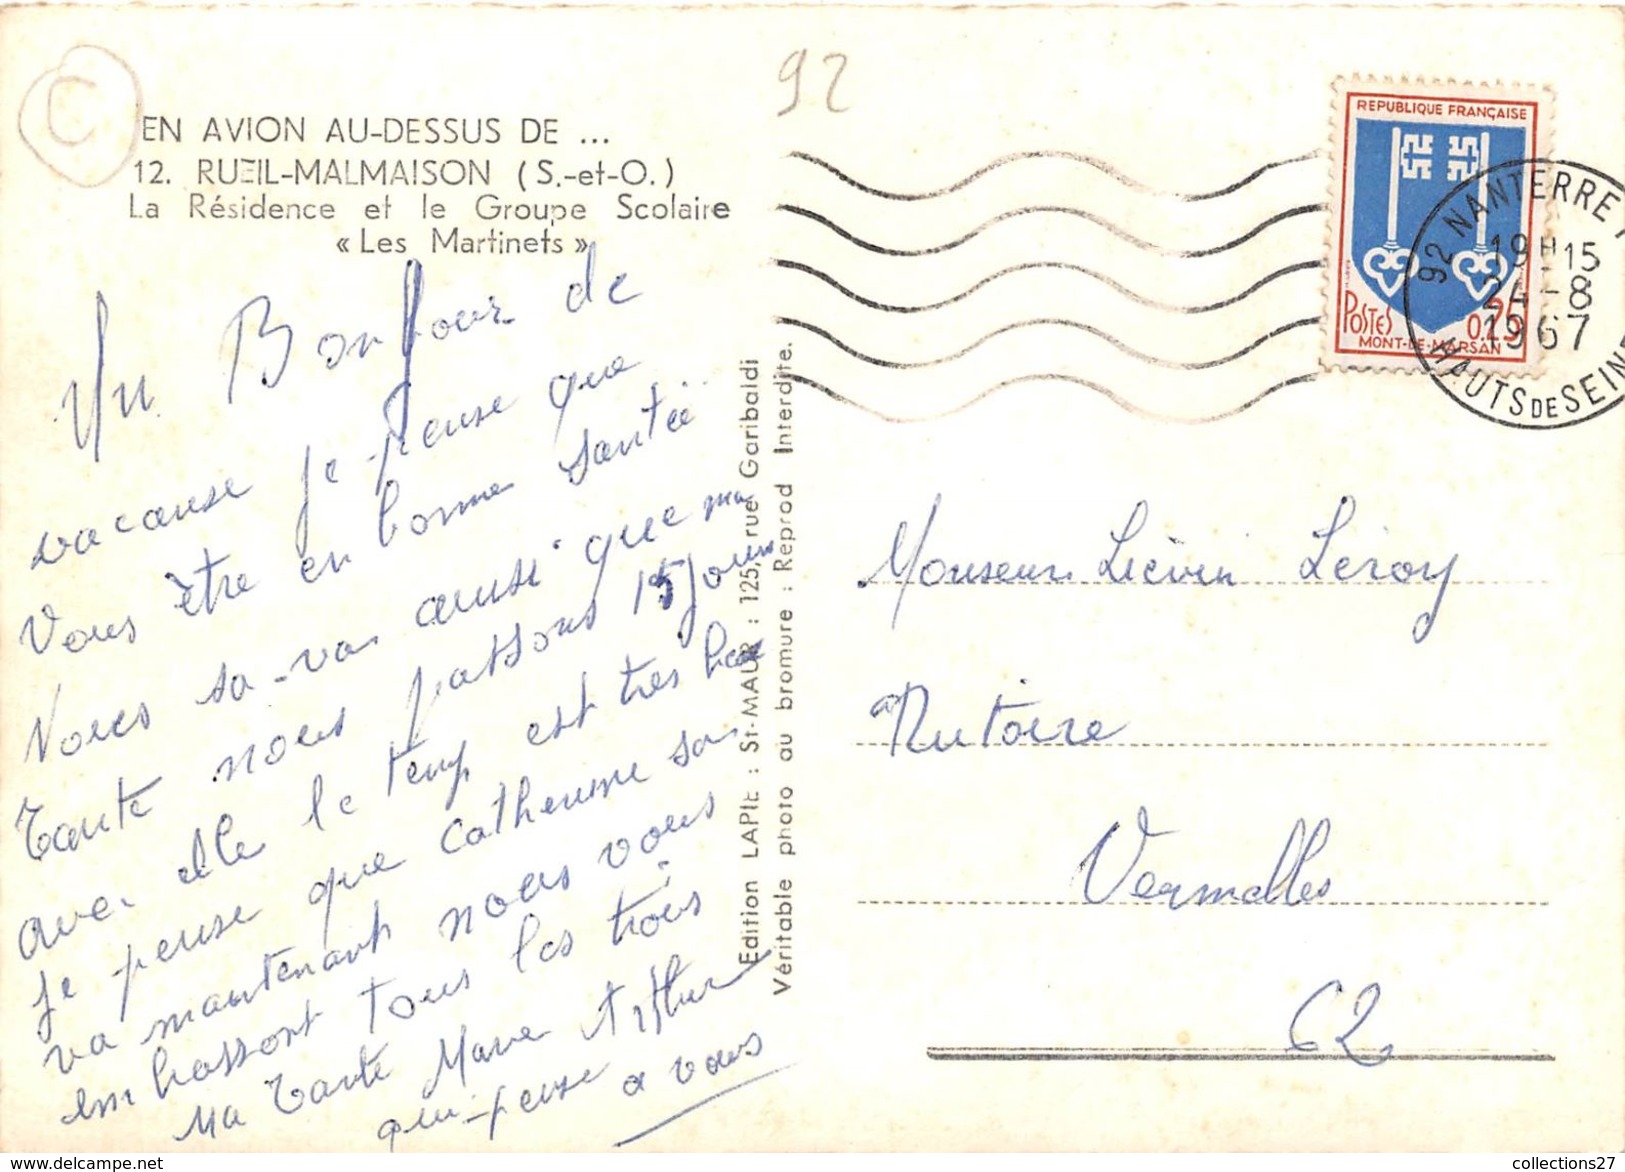 C
92
EN AVION AU-DESSUS DE ...
12. RUEIL-MALMAISON (S.-et-O.)
La Résidence et le Groupe Scolaire
« Les Martinets »
Un Bonjour de
vacause je pense que
Vous être en bonne santée
Nous sa-va ausi que ma
tante nous passons 15 jours
avec elle le temp est très
je pense que Catherine sa
va maintenant nous vous
embrassont tous les trois
Ma tante Marie Arthur
qui-pense a vous
Edition LAPIE : St-MAUR : 125, rue Garibaldi
Véritable photo au bromure : Reprod Interdite.
REPUBLIQUE FRANÇAISE
POSTES 0,25
MONT-DE-MARSAN
92 NANTERRE
19H15
24-8
1967
HAUTS DE SEINE
Monseur Lièvin Leroy
Nutoire
Vermelles
62
collections27